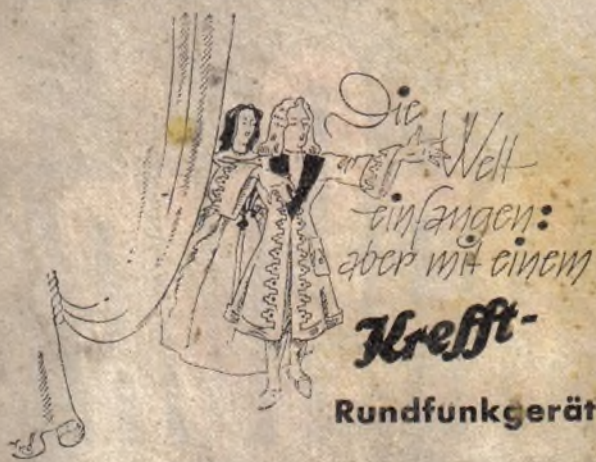 Die
Welt
einfangen:
aber mit einem
Krefft-
Rundfunkgerät